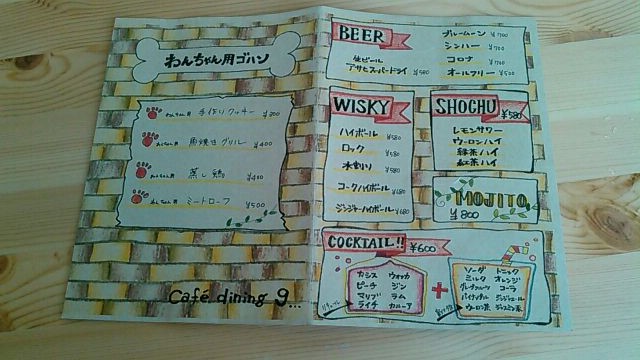 わんちゃん用ゴハン
わんちゃん用 手作りクッキー ¥300
わんちゃん用 馬焼きグリル ¥400
わんちゃん用 蒸し鶏 ¥400
わんちゃん用 ミートローフ ¥500
Cafe dining 9...
BEER
生ビール
アサヒスーパードライ ¥580
ブルームーン ¥700
シンハー ¥700
コロナ ¥700
オールフリー ¥500
WISKY
ハイボール ¥580
ロック ¥580
水割り ¥580
コークハイボール ¥680
ジンジャーハイボール ¥680
SHOCHU ¥580
レモンサワー
ウーロンハイ
緑茶ハイ
紅茶ハイ
MOJITO
¥800
COCKTAIL!! ¥600
カシス ウォッカ
ピーチ ジン
マリブ ラム
ライチ カルーア
+
ソーダ トニック
ミルク オレンジ
グレープフルーツ コーラ
パイナップル ジンジャエール
ウーロン茶 ジャスミン茶